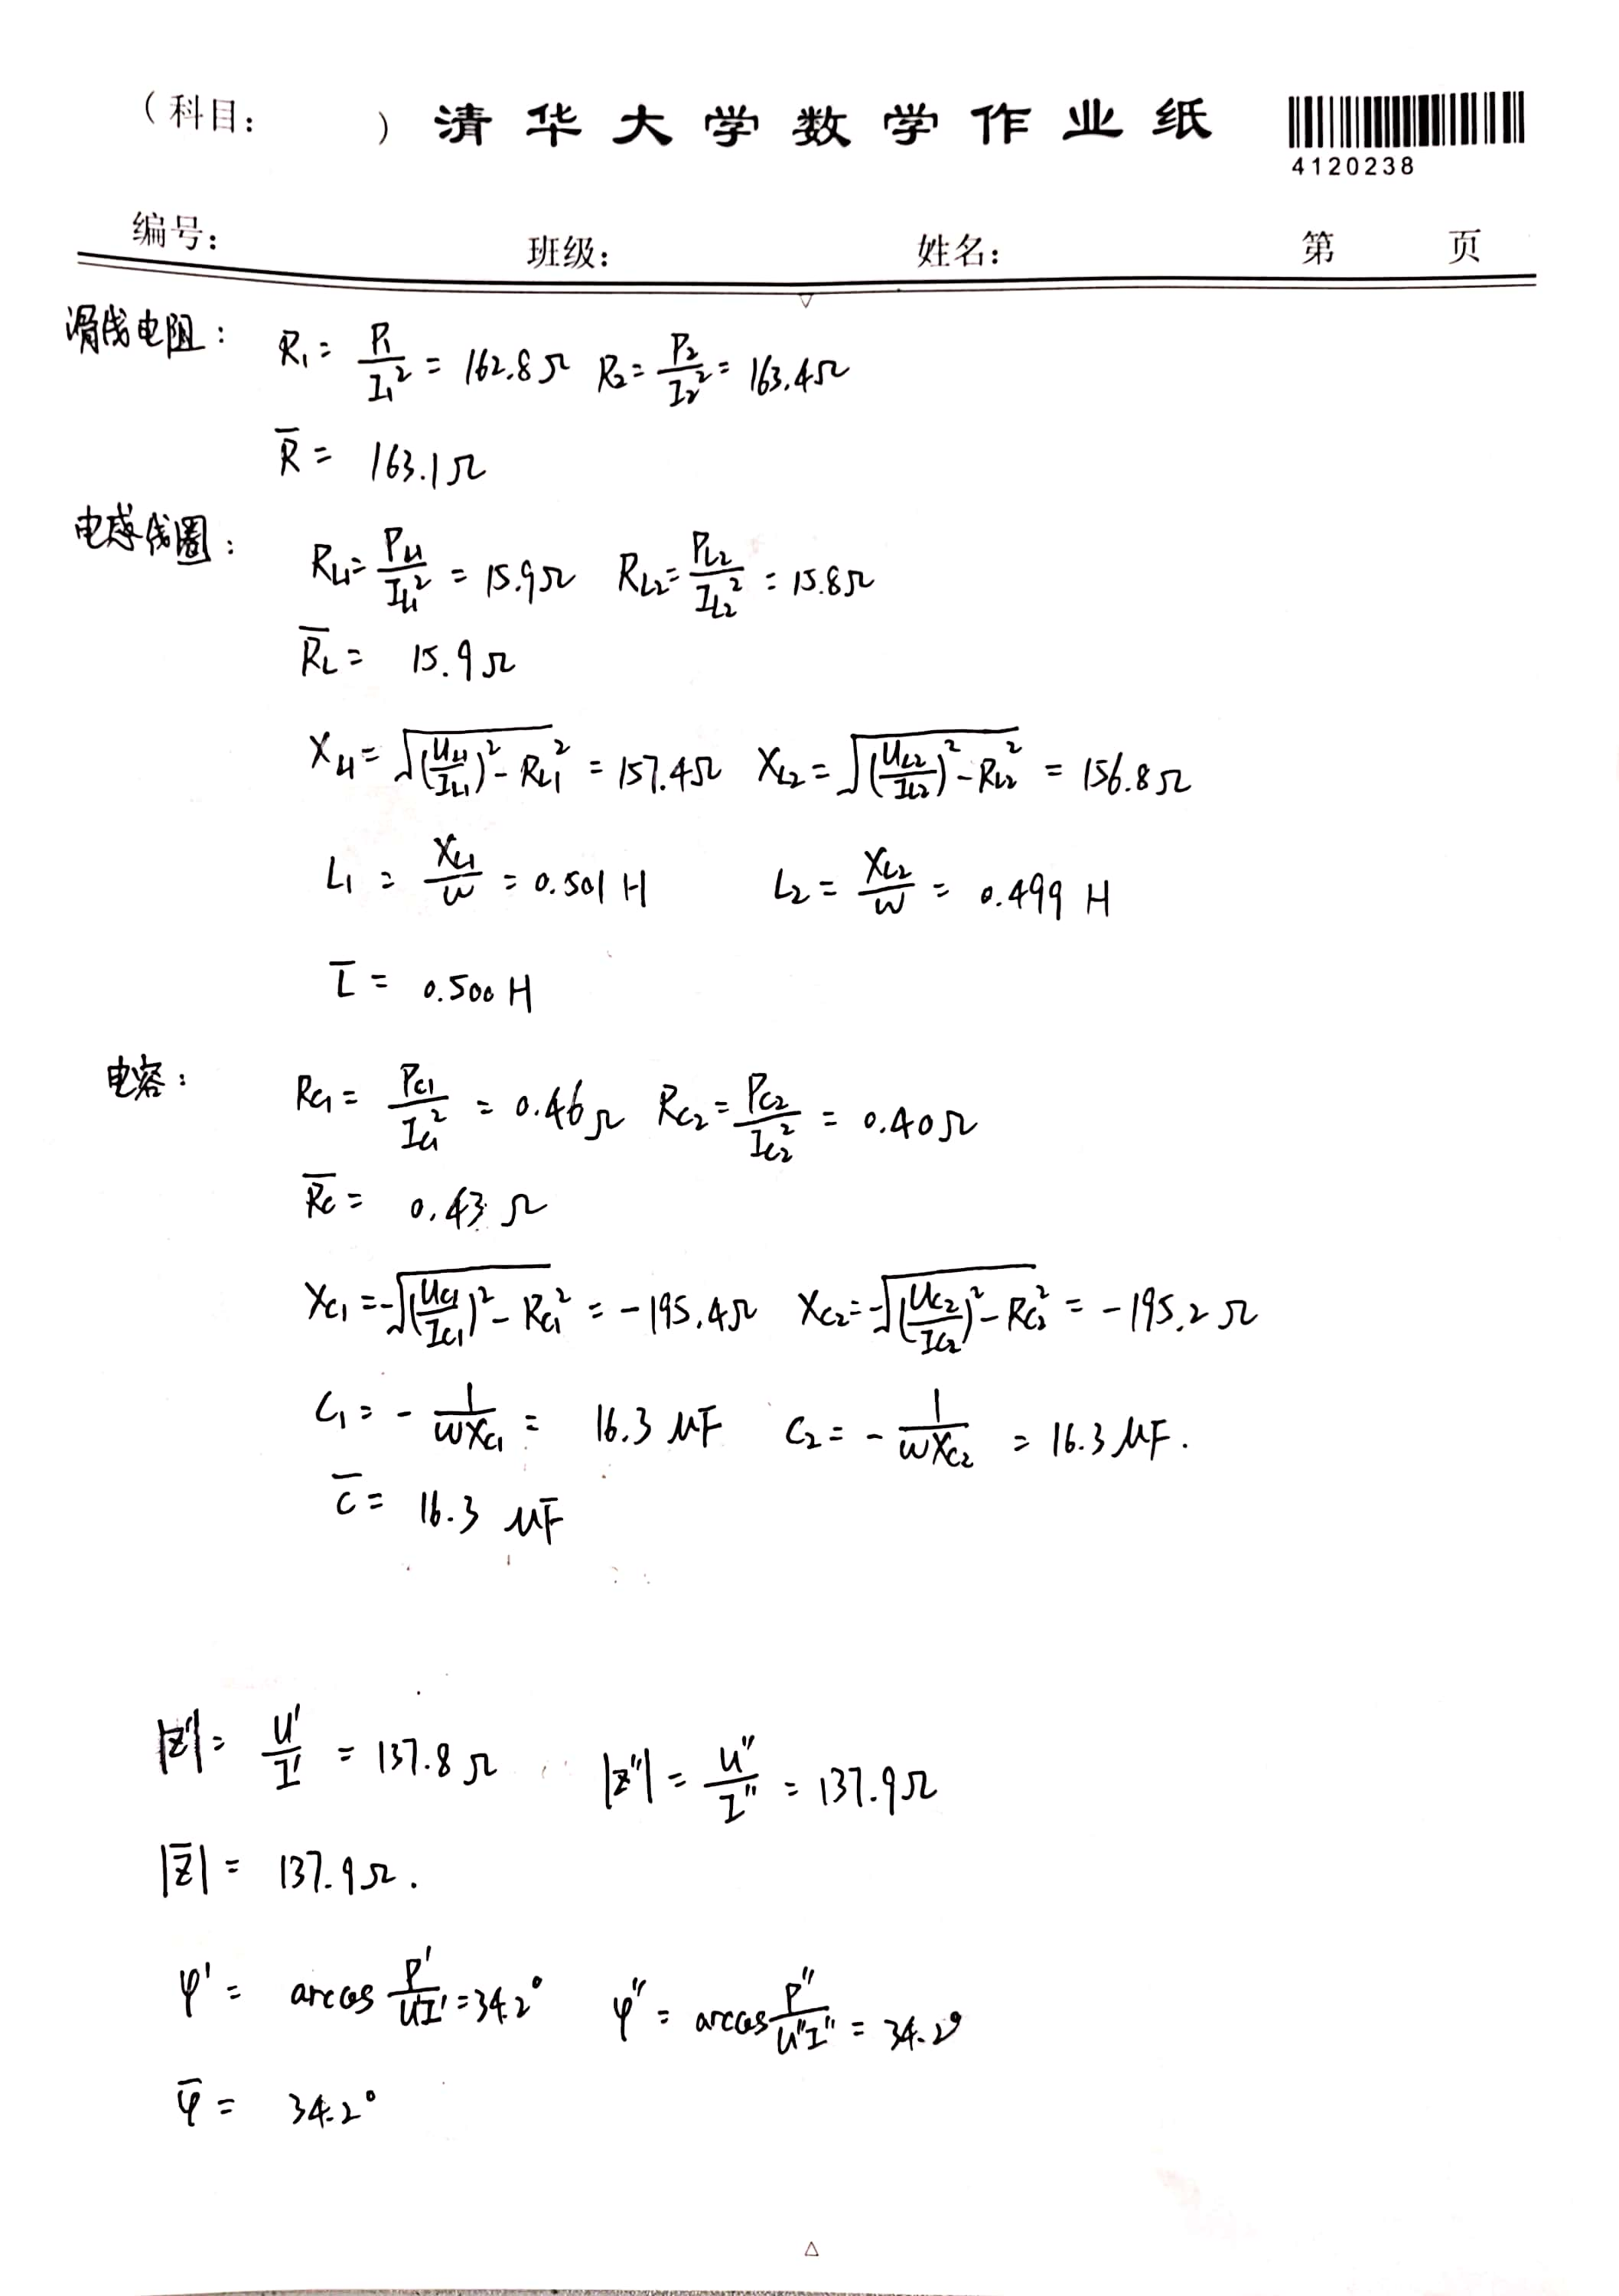 （科目： ） 清华大学数学作业纸
4120238
编号： 班级： 姓名： 第 页
滑线电阻： R₁ = P₁/I₁² = 162.8Ω R₂ = P₂/I₂² = 163.4Ω
R̅ = 163.1Ω
电感线圈： R_L1 = P_L1/I_L1² = 15.9Ω R_L2 = P_L2/I_L2² = 15.8Ω
R̅_L = 15.9Ω
X_L1 = √((U_L1/I_L1)² - R_L1²) = 157.4Ω X_L2 = √((U_L2/I_L2)² - R_L2²) = 156.8Ω
L₁ = X_L1/ω = 0.501 H L₂ = X_L2/ω = 0.499 H
L̅ = 0.500 H
电容： R_C1 = P_C1/I_C1² = 0.46Ω R_C2 = P_C2/I_C2² = 0.40Ω
R̅_C = 0.43Ω
X_C1 = -√((U_C1/I_C1)² - R_C1²) = -195.4Ω X_C2 = -√((U_C2/I_C2)² - R_C2²) = -195.2Ω
C₁ = - 1/(ωX_C1) = 16.3 μF C₂ = - 1/(ωX_C2) = 16.3 μF.
C̅ = 16.3 μF
|Z'| = U'/I' = 137.8Ω |Z''| = U''/I'' = 137.9Ω
|Z̅| = 137.9Ω.
φ' = arccos P'/(U'I') = 34.2° φ'' = arccos P''/(U''I'') = 34.2°
φ̅ = 34.2°